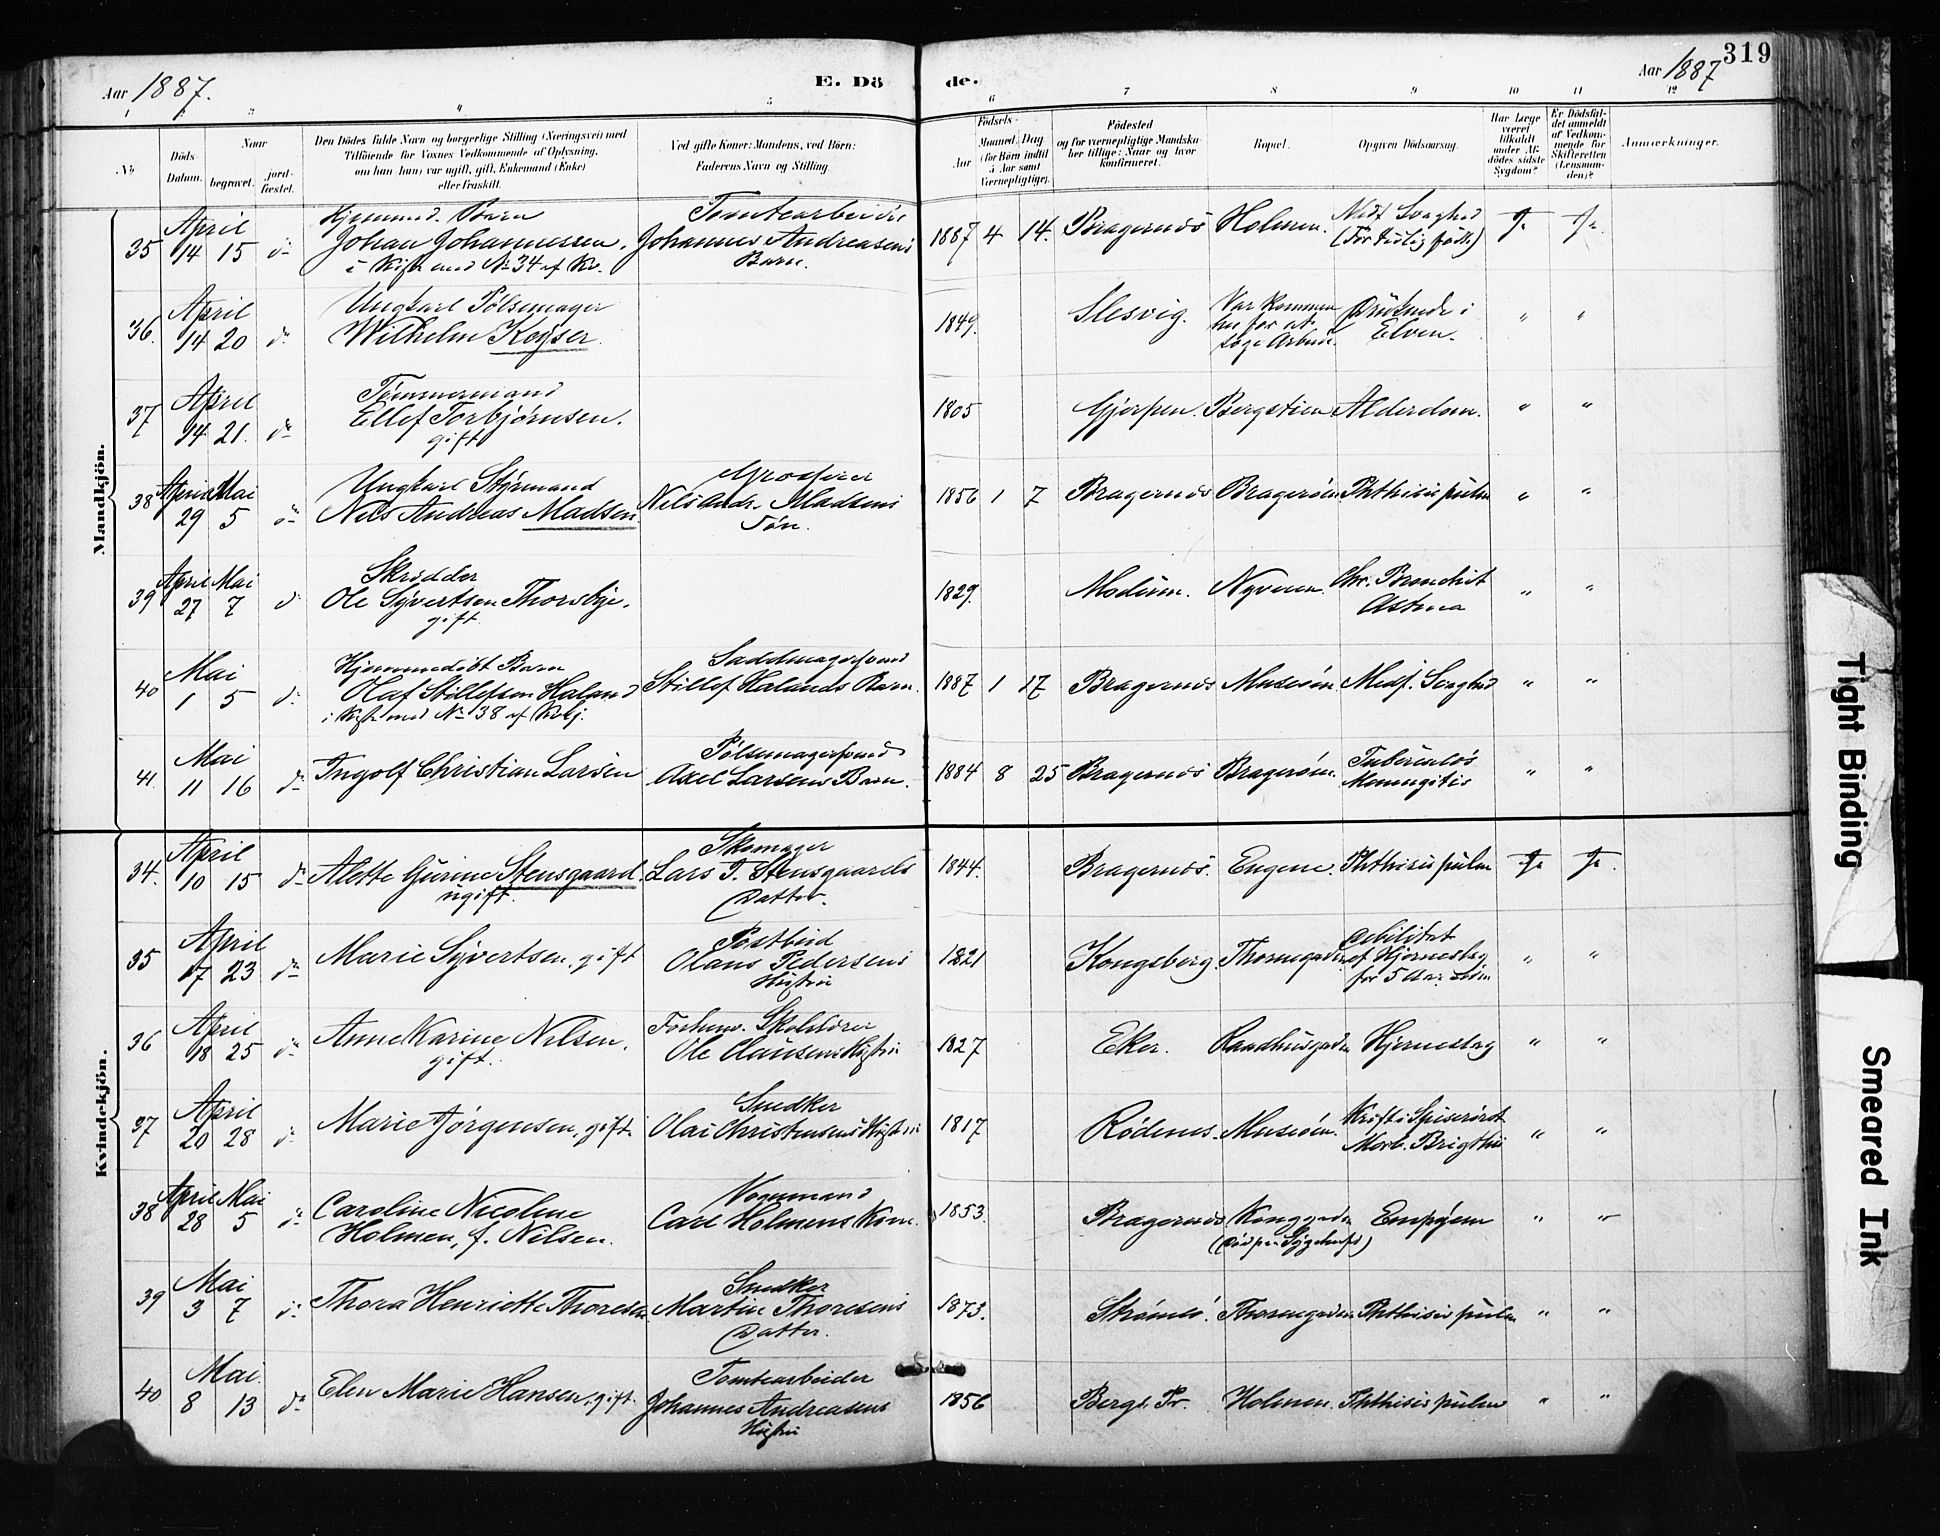 Aar 1887.
E. Dö
de.
Aar 1887
319
1 2 3 4 5 6 7 8 9 10 11 12
No
Döds-Datum.
Naar
begravet.
jord-fæstet.
Den Dödes fulde Navn og borgerlige Stilling (Næringsvei) med
Tilföiende for Voxnes Vedkommende af Oplysning,
om han (hun) var ugift, gift, Enkemand (Enke)
eller fraskilt.
Ved gifte Koner: Mandens, ved Börn:
Faderens Navn og Stilling.
Födsels-
Aar
Maaned Dag
(for Börn indtil
5 Aar samt
Værnepligtige).
Födested
og for værnepligtige Mandskaber tillige: Naar og hvor
konfirmeret.
Bopæl.
Opgiven Dödsaarsag.
Har Læge
været
tilkaldt
under Afdödes sidste
Sygdom?
Er Dödsfaldet anmeldt
af Vedkommende for
Skifteretten
(Lensmanden)?
Anmærkninger.
Mandkjön.
35 April 14 15 do
Hjemmed. Barn
Johan Johannessen.
i Kiste med No 34 af Kv.
Tomtearbeider
Johannes Andreasens
Barn.
1887 4 14. Bragernæs Holmen. Medf. Svaghed
(For tidlig født) Ja Ja.
36. April 14 20 do
Ungkarl Pølsemager
Wilhelm Koyser.
1849. Slesvig. Var kommen
her for at
søge Arbeide. Druknede i
Elven. " "
37 April 14 21. do
Tømmermand
Ellef Torbjørnsen.
gift
1805 Gjerpen. Bergstien. Alderdom. " "
38 April 29 Mai 5 do
Ungkarl Styrmand
Nils Andreas Madsen
Grosserer
Nils Andr. Madsens
Søn.
1856 1 7 Bragernæs Bragerøen Phthisis pulm " "
39 April 27 Mai 7 do
Skrædder
Ole Syvertsen Thorsbye.
gift.
1829. Modum. Nyveien. Chr. Bronchit
Astma " "
40 Mai 1 5 do
Hjemmedøbt Barn
Olaf Stillefsen Haland
i Kiste med No 38 af Kvkj.
Sadelmagersvend
Stillef Halands Barn.
1887 1 17 Bragernæs Museøen Medf. Svaghed " "
41. Mai 11 16 do
Ingolf Christian Larsen
Pølsemagersvend
Axel Larsens Barn.
1884 8 25 Bragernæs Bragerøen. Tuberculøs
Meningitis " "
Kvindekjön.
34. April 10 15 do
Alette Gurine Stensgaard
ugift.
Skomager
Lars T. Stensgaards
Datter.
1844. Bragernæs. Engene. Phthisis pulm Ja Ja.
35 April 17 23 do
Marie Syvertsen, gift
Postbud
Olaus Pedersens
Hustru
1821 Kongsberg. Thornegaden Debilitet
ef Hjerneslag
for 5 Aar siden " "
36 April 18 25 do
Anne Karine Nilsen.
gift.
Forhenv. Skolelærer
Ole Clausens Hustru
1827 Eker. Raadhusgaden Hjerneslag " "
37 April 20 28 do
Marie Jørgensen, gift
Snedker
Olai Christensens Hustru
1817 Rødenes. Museøen. Kræft i Spiserøret
Morb. Brigthii " "
38 April 28 Mai 5 do
Caroline Nicoline
Holmen, f. Nilsen.
Vognmand
Carl Holmens Kone
1853. Bragernæs Konggaden
(Død paa Sygehuset) Empyem " "
39 Mai 3 7 do
Thora Henriette Thoresen
Snedker
Martin Thoresens
Datter.
1873. Strømsø. Thornegaden Phthisis pulm " "
40 Mai 8 13 do
Elen Marie Hansen, gift.
Tomtearbeider
Johannes Andreasens
Hustru
1856 Bergs Pr. Holmen. Phthisis pulm " "
Tight Binding
Smeared Ink